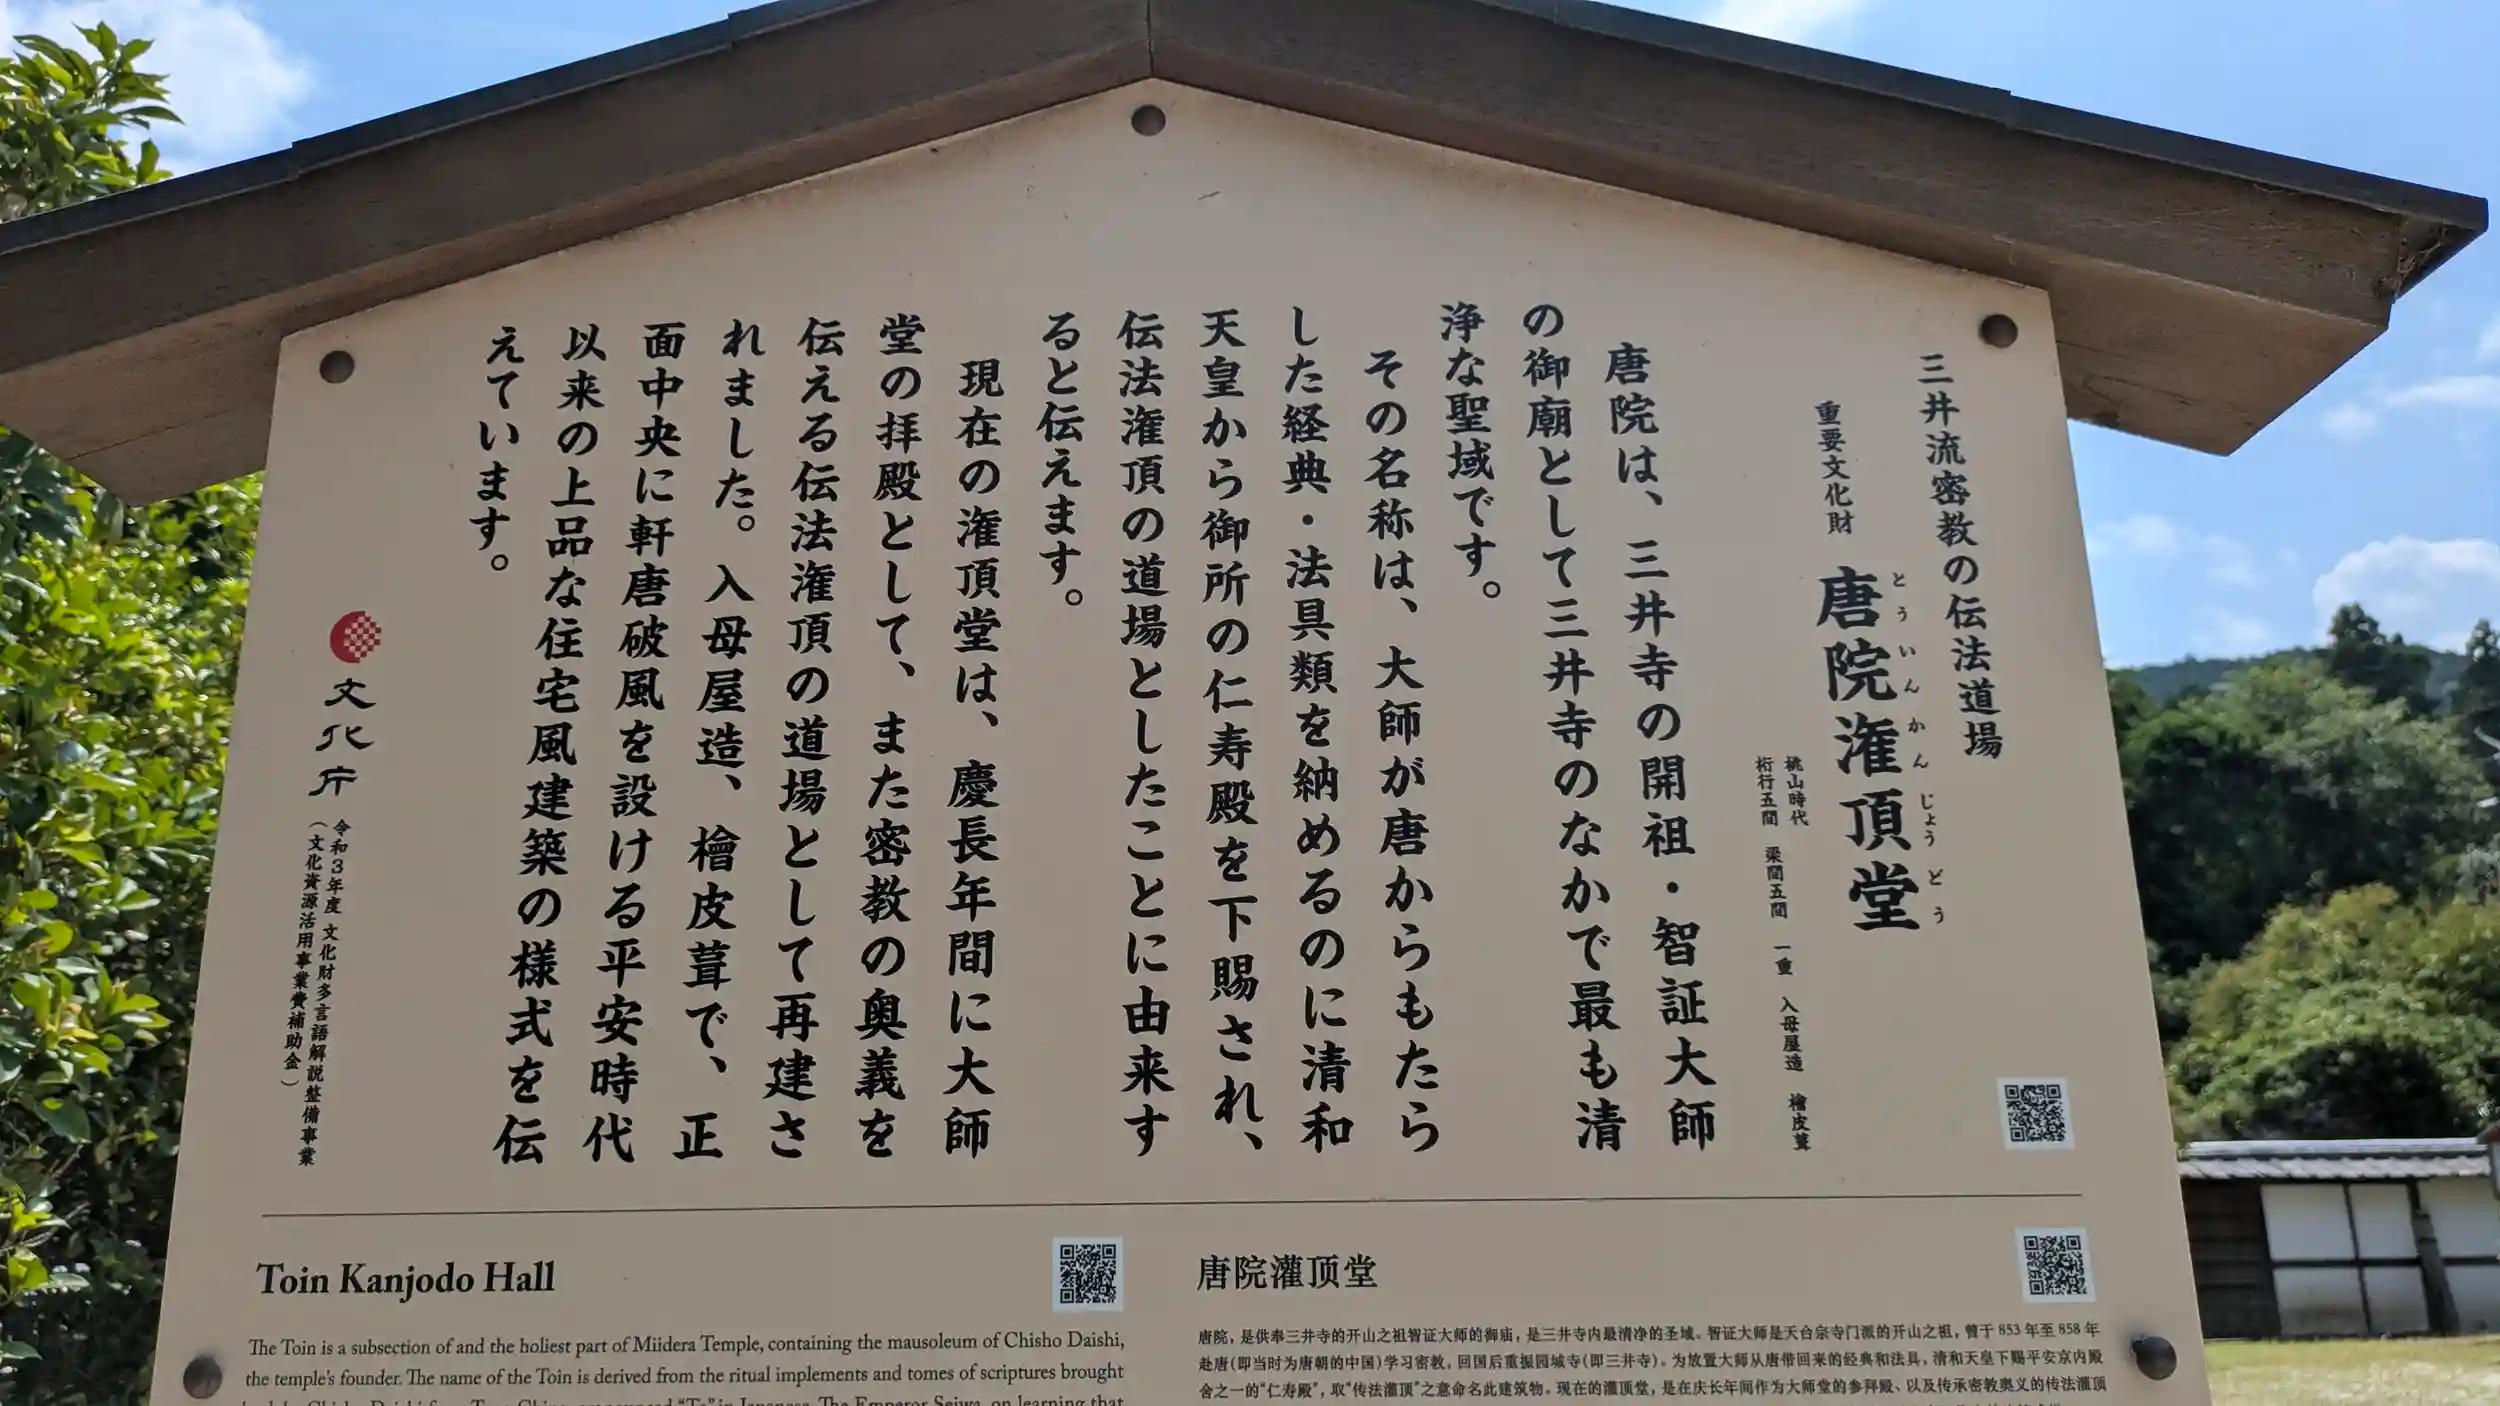 三井流密教の伝法道場
重要文化財 唐院潅頂堂
とう いん かん じょう どう
桃山時代
桁行五間 梁間五間 一重 入母屋造 檜皮葺
唐院は、三井寺の開祖・智証大師
の御廟として三井寺のなかで最も清
浄な聖域です。
その名称は、大師が唐からもたら
した経典・法具類を納めるのに清和
天皇から御所の仁寿殿を下賜され、
伝法潅頂の道場としたことに由来す
ると伝えます。
現在の潅頂堂は、慶長年間に大師
堂の拝殿として、また密教の奥義を
伝える伝法潅頂の道場として再建さ
れました。入母屋造、檜皮葺で、正
面中央に軒唐破風を設ける平安時代
以来の上品な住宅風建築の様式を伝
えています。
文化庁
令和3年度 文化財多言語解説整備事業
（文化資源活用事業費補助金）
Toin Kanjodo Hall
The Toin is a subsection of and the holiest part of Miidera Temple, containing the mausoleum of Chisho Daishi,
the temple's founder. The name of the Toin is derived from the ritual implements and tomes of scriptures brought
唐院灌顶堂
唐院，是供奉三井寺的开山之祖智证大师的御庙，是三井寺内最清净的圣域。智证大师是天台宗寺门派的开山之祖，曾于 853 年至 858 年
赴唐(即当时为唐朝的中国)学习密教，回国后重振园城寺(即三井寺)。为放置大师从唐带回来的经典和法具，清和天皇下赐平安京内殿
舍之一的“仁寿殿”，取“传法灌顶”之意命名此建筑物。现在的灌顶堂，是在庆长年间作为大师堂的参拜殿、以及传承密教奥义的传法灌顶